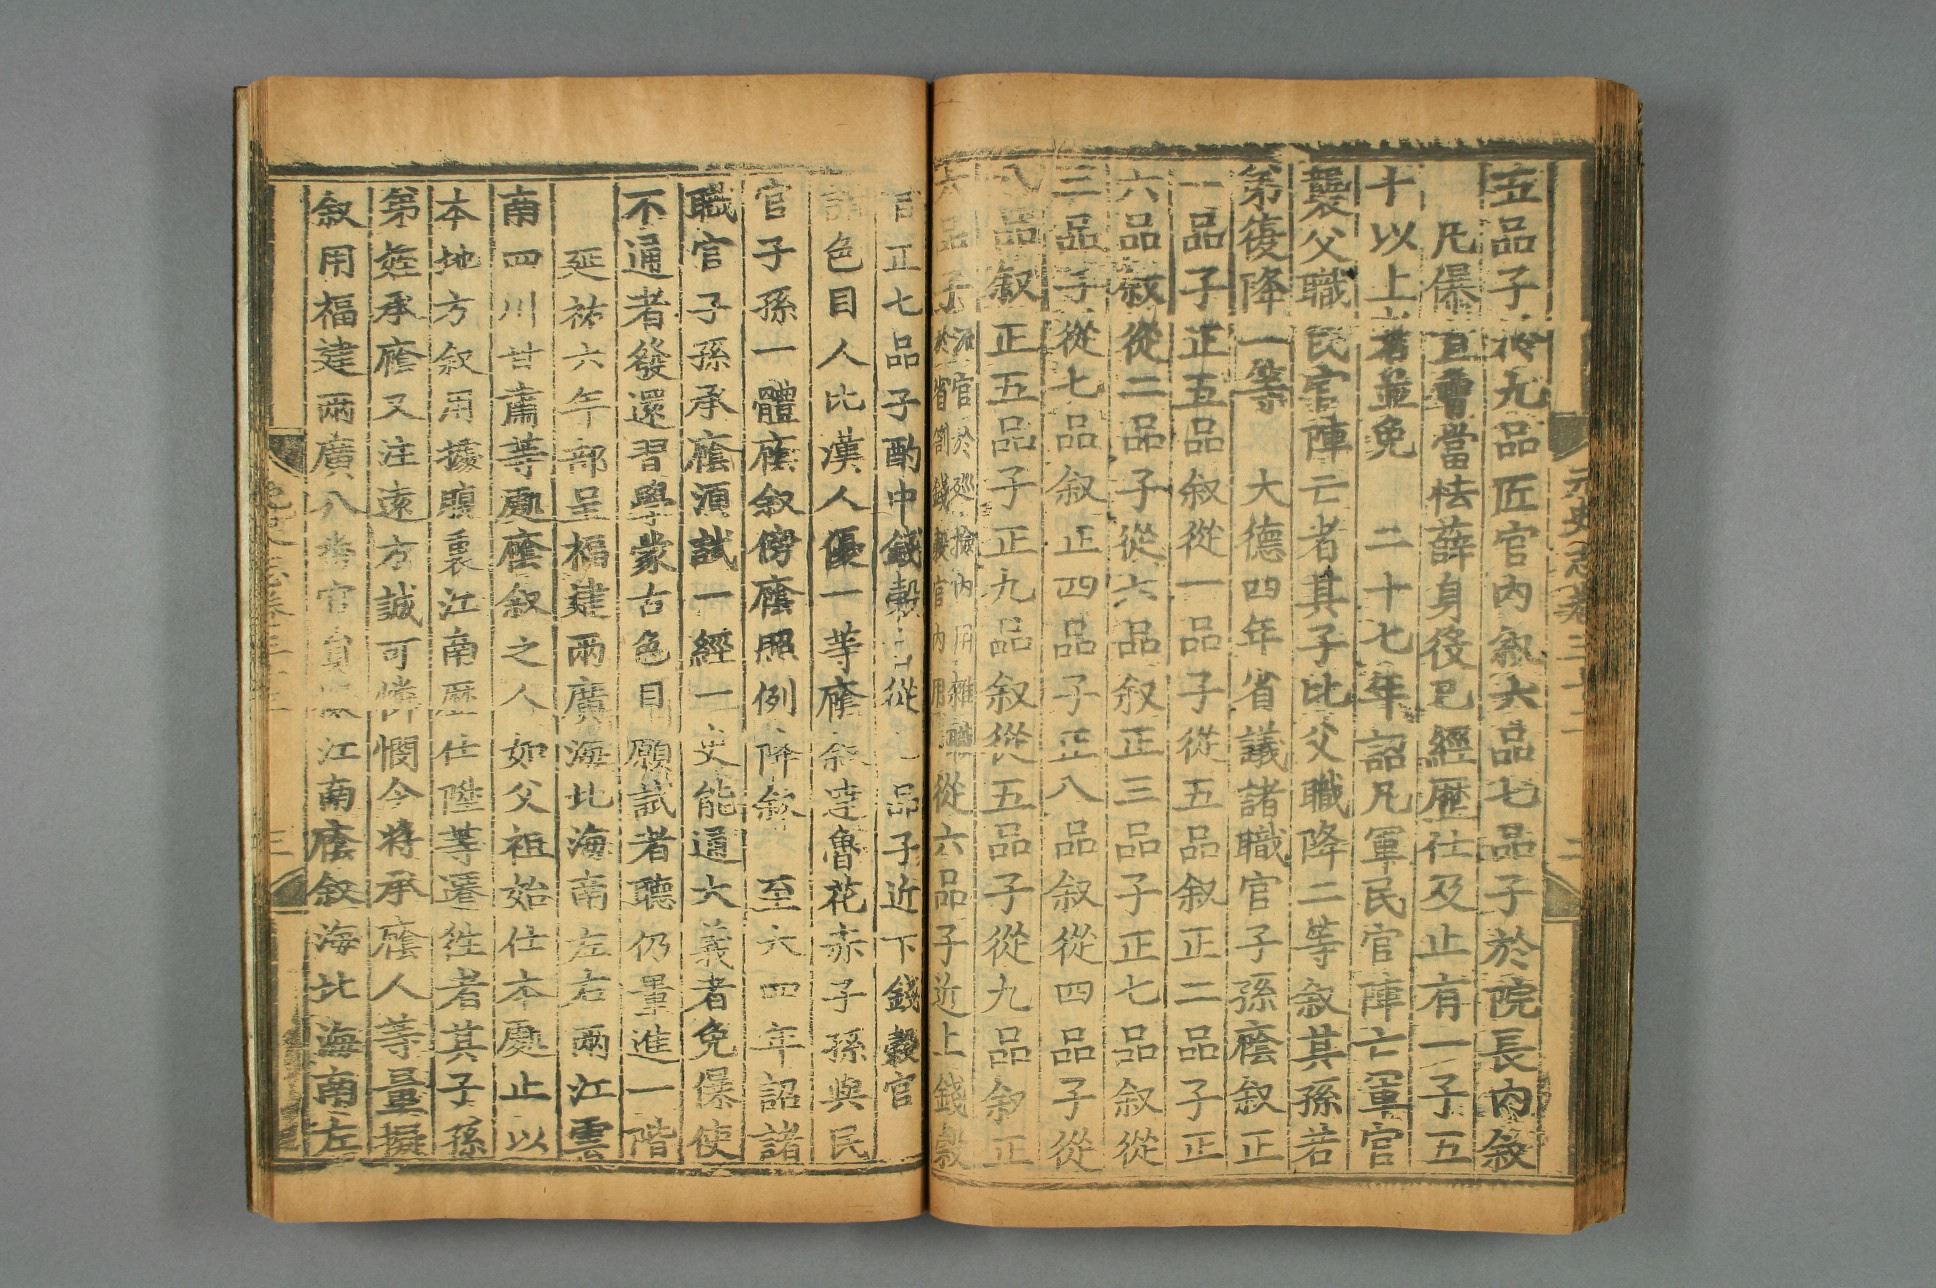 元史志卷三十二
二
五品子從九品匠官內敘六品七品子於院長內敘
凡傔直曾當怯薛身役已經歷仕及止有一子五
十以上者並免 二十七年詔凡軍民官陣亡軍官
襲父職民官陣亡者其子比父職降二等敘其孫若
第復降一等 大德四年省議諸職官子孫廕敘正
一品子正五品敘從一品子從五品敘正二品子正
六品敘從二品子從六品敘正三品子正七品敘從
三品子從七品敘正四品子正八品敘從四品子從
八品敘正五品子正九品敘從五品子從九品敘正
六品子流官於巡檢內用雜職於省劄錢穀官內用從六品子近上錢穀
官正七品子酌中錢穀官從七品子近下錢穀官
諸色目人比漢人優一等廕敘達魯花赤子孫與民
官子孫一體廕敘傍廕照例降敘 至六四年詔諸
職官子孫承廕須試一經一史能通大義者免傔使
不通者發還習學蒙古色目願試者聽仍量進一階
延祐六年部呈福建兩廣海北海南左右兩江雲
南四川甘肅等處廕敘之人如父祖始仕本處止以
本地方敘用據腹裏江南歷仕陞等遷往者其子孫
第姪承廕又注遠方誠可憐憫今將承廕人等量擬
敘用福建兩廣八番官員江南廕敘海北海南左
三